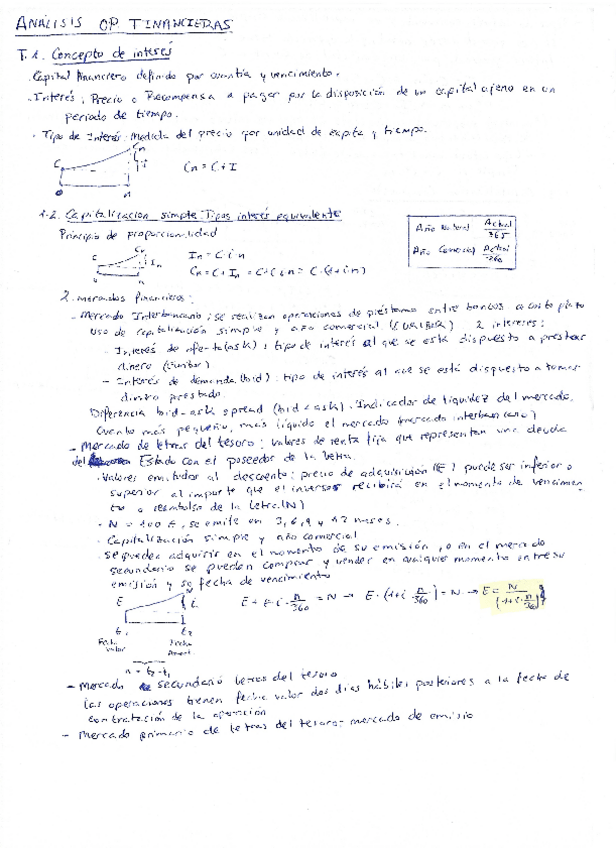 ANÁLISIS OP FINANCIERAS
T.1. Concepto de interés
. Capital financiero definido por cuantía y vencimiento.
. Interés: Precio o Recompensa a pagar por la disposición de un capital ajeno en un
periodo de tiempo.
. Tipo de Interés: Medida del precio por unidad de capital y tiempo.
C Cn I
0 n
Cn = C + I
1.2. Capitalización simple. Tipos interés equivalente
Principio de proporcionalidad
Año Natural Actual/365
Año Comercial Actual/360
C Cn In
In = C·i·n
Cn = C + In = C + C·i·n = C·(1+i·n)
2 mercados financieros:
- Mercado Interbancario: se realizan operaciones de préstamo entre bancos a corto plazo
uso de capitalización simple y año comercial (EURIBOR) 2 intereses:
- Interés de oferta (ask): tipo de interés al que se está dispuesto a prestar
dinero
- Interés de demanda (bid): tipo de interés al que se está dispuesto a tomar
dinero prestado.
Diferencia bid-ask spread (bid < ask). Indicador de liquidez del mercado.
Cuanto más pequeño, más líquido el mercado (mercado interbancario)
- Mercado de letras del tesoro: valores de renta fija que representan una deuda
del Estado con el poseedor de la letra.
. Valores emitidos al descuento: precio de adquisición (E) puede ser inferior o
superior al importe que el inversor recibirá en el momento de vencimien
to o reembolso de la letra (N)
- N = 1000 €, se emite en 3, 6, 9 y 12 meses.
. Capitalización simple y año comercial
. se pueden adquirir en el momento de su emisión, o en el mercado
secundario se pueden comprar y vender en cualquier momento entre su
emisión y su fecha de vencimiento
E N
E + E·i·n/360 = N → E·(1+i·n/360) = N → E = N/(1+i·n/360)
t1 t2
Fecha valor Fecha Amort.
n = t2 - t1
- Mercado secundario letras del tesoro
las operaciones tienen fecha valor dos días hábiles posteriores a la fecha de
contratación de la operación
- Mercado primario de letras del tesoro: mercado de emisión